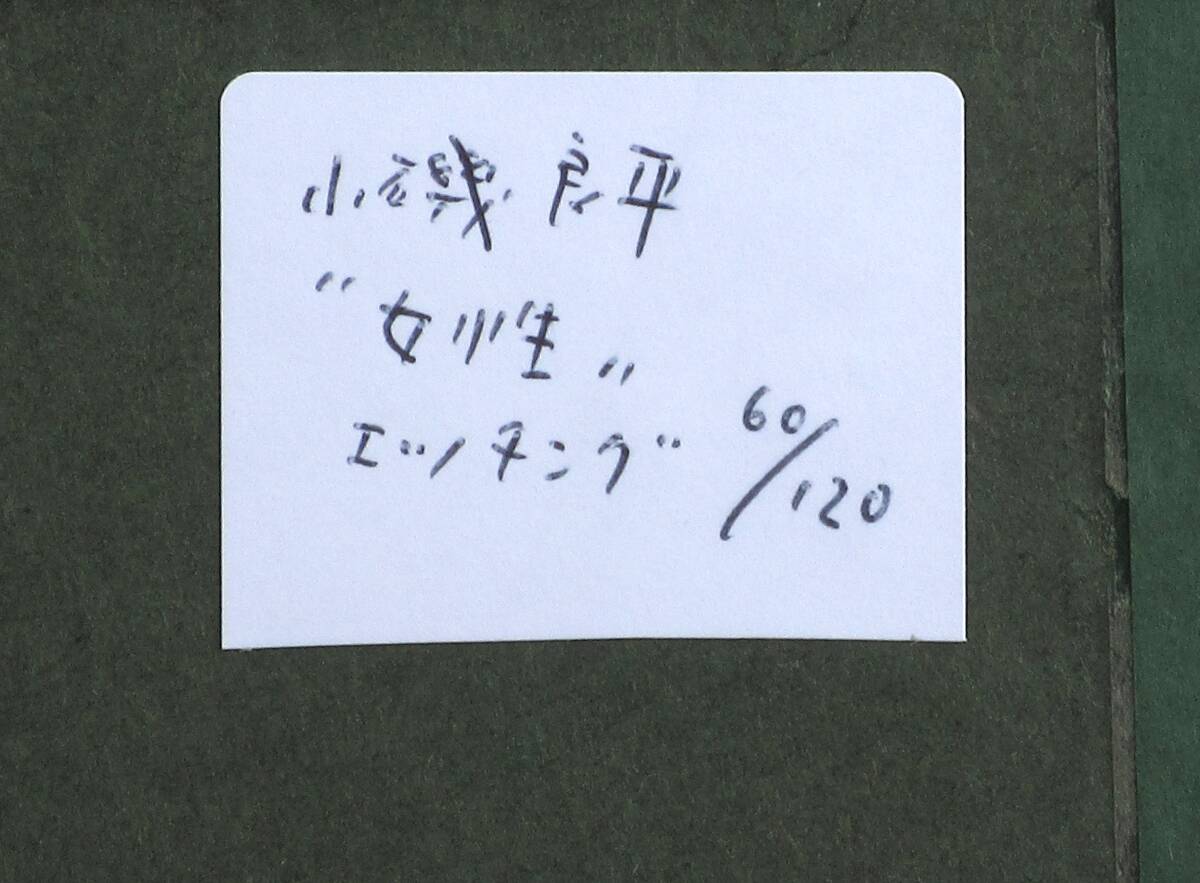 小磯良平
"女性"
エッチング 60/120